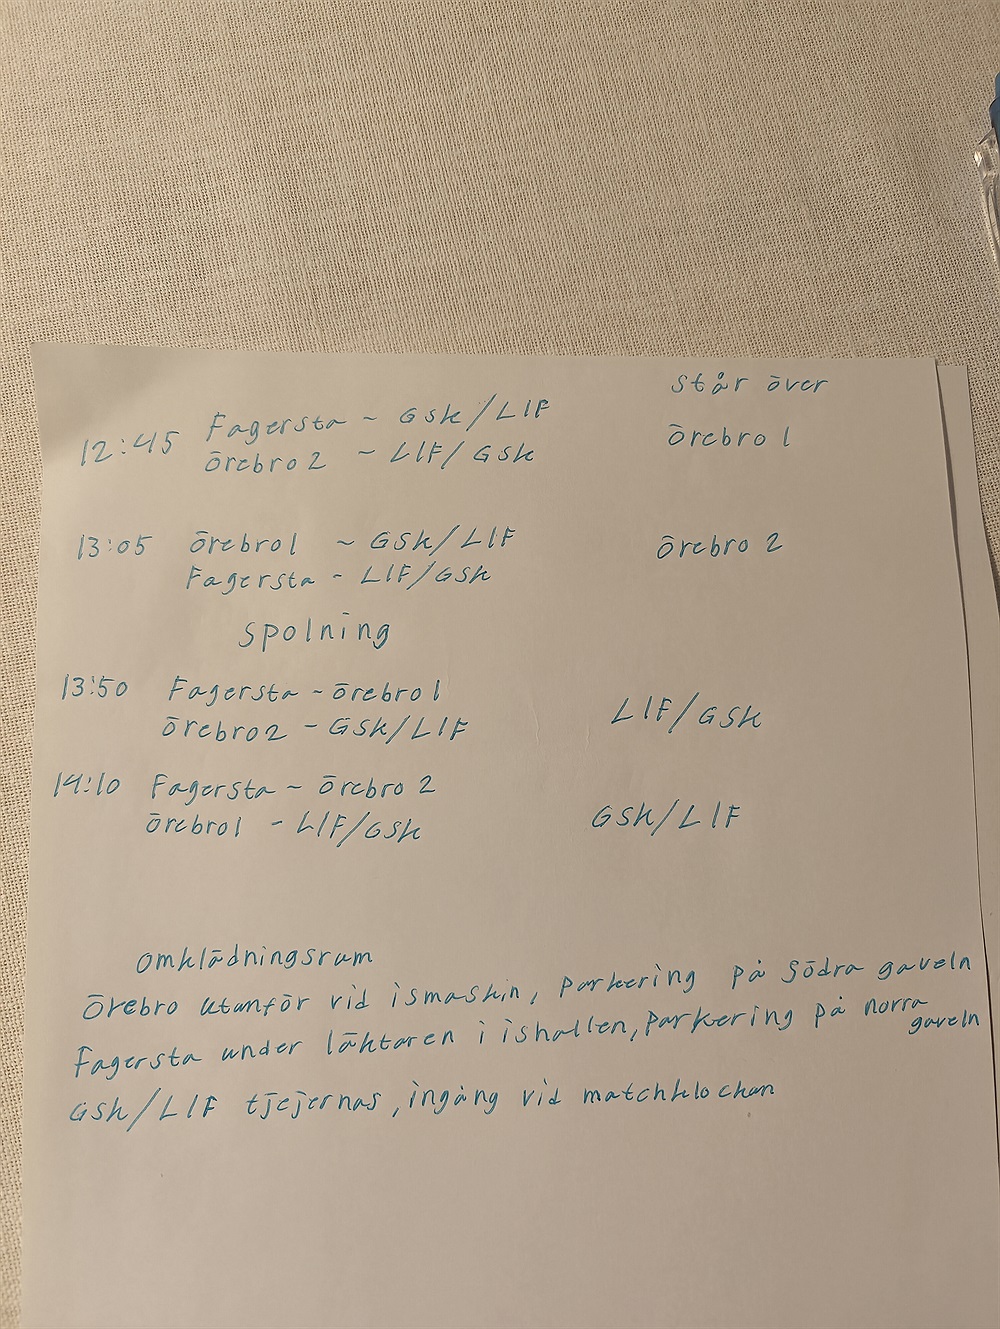 står över
12:45 Fagersta - GSK/LIF Örebro 1
Örebro 2 - LIF/GSK
13:05 Örebro 1 - GSK/LIF Örebro 2
Fagersta - LIF/GSK
Spolning
13:50 Fagersta - Örebro 1
Örebro 2 - GSK/LIF LIF/GSK
14:10 Fagersta - Örebro 2
Örebro 1 - LIF/GSK GSK/LIF
Omklädningsrum
Örebro utanför vid ismaskin, parkering på Södra gaveln
Fagersta under läktaren i ishallen, parkering på norra
gaveln
GSK/LIF tjejernas, ingång vid matchklockan